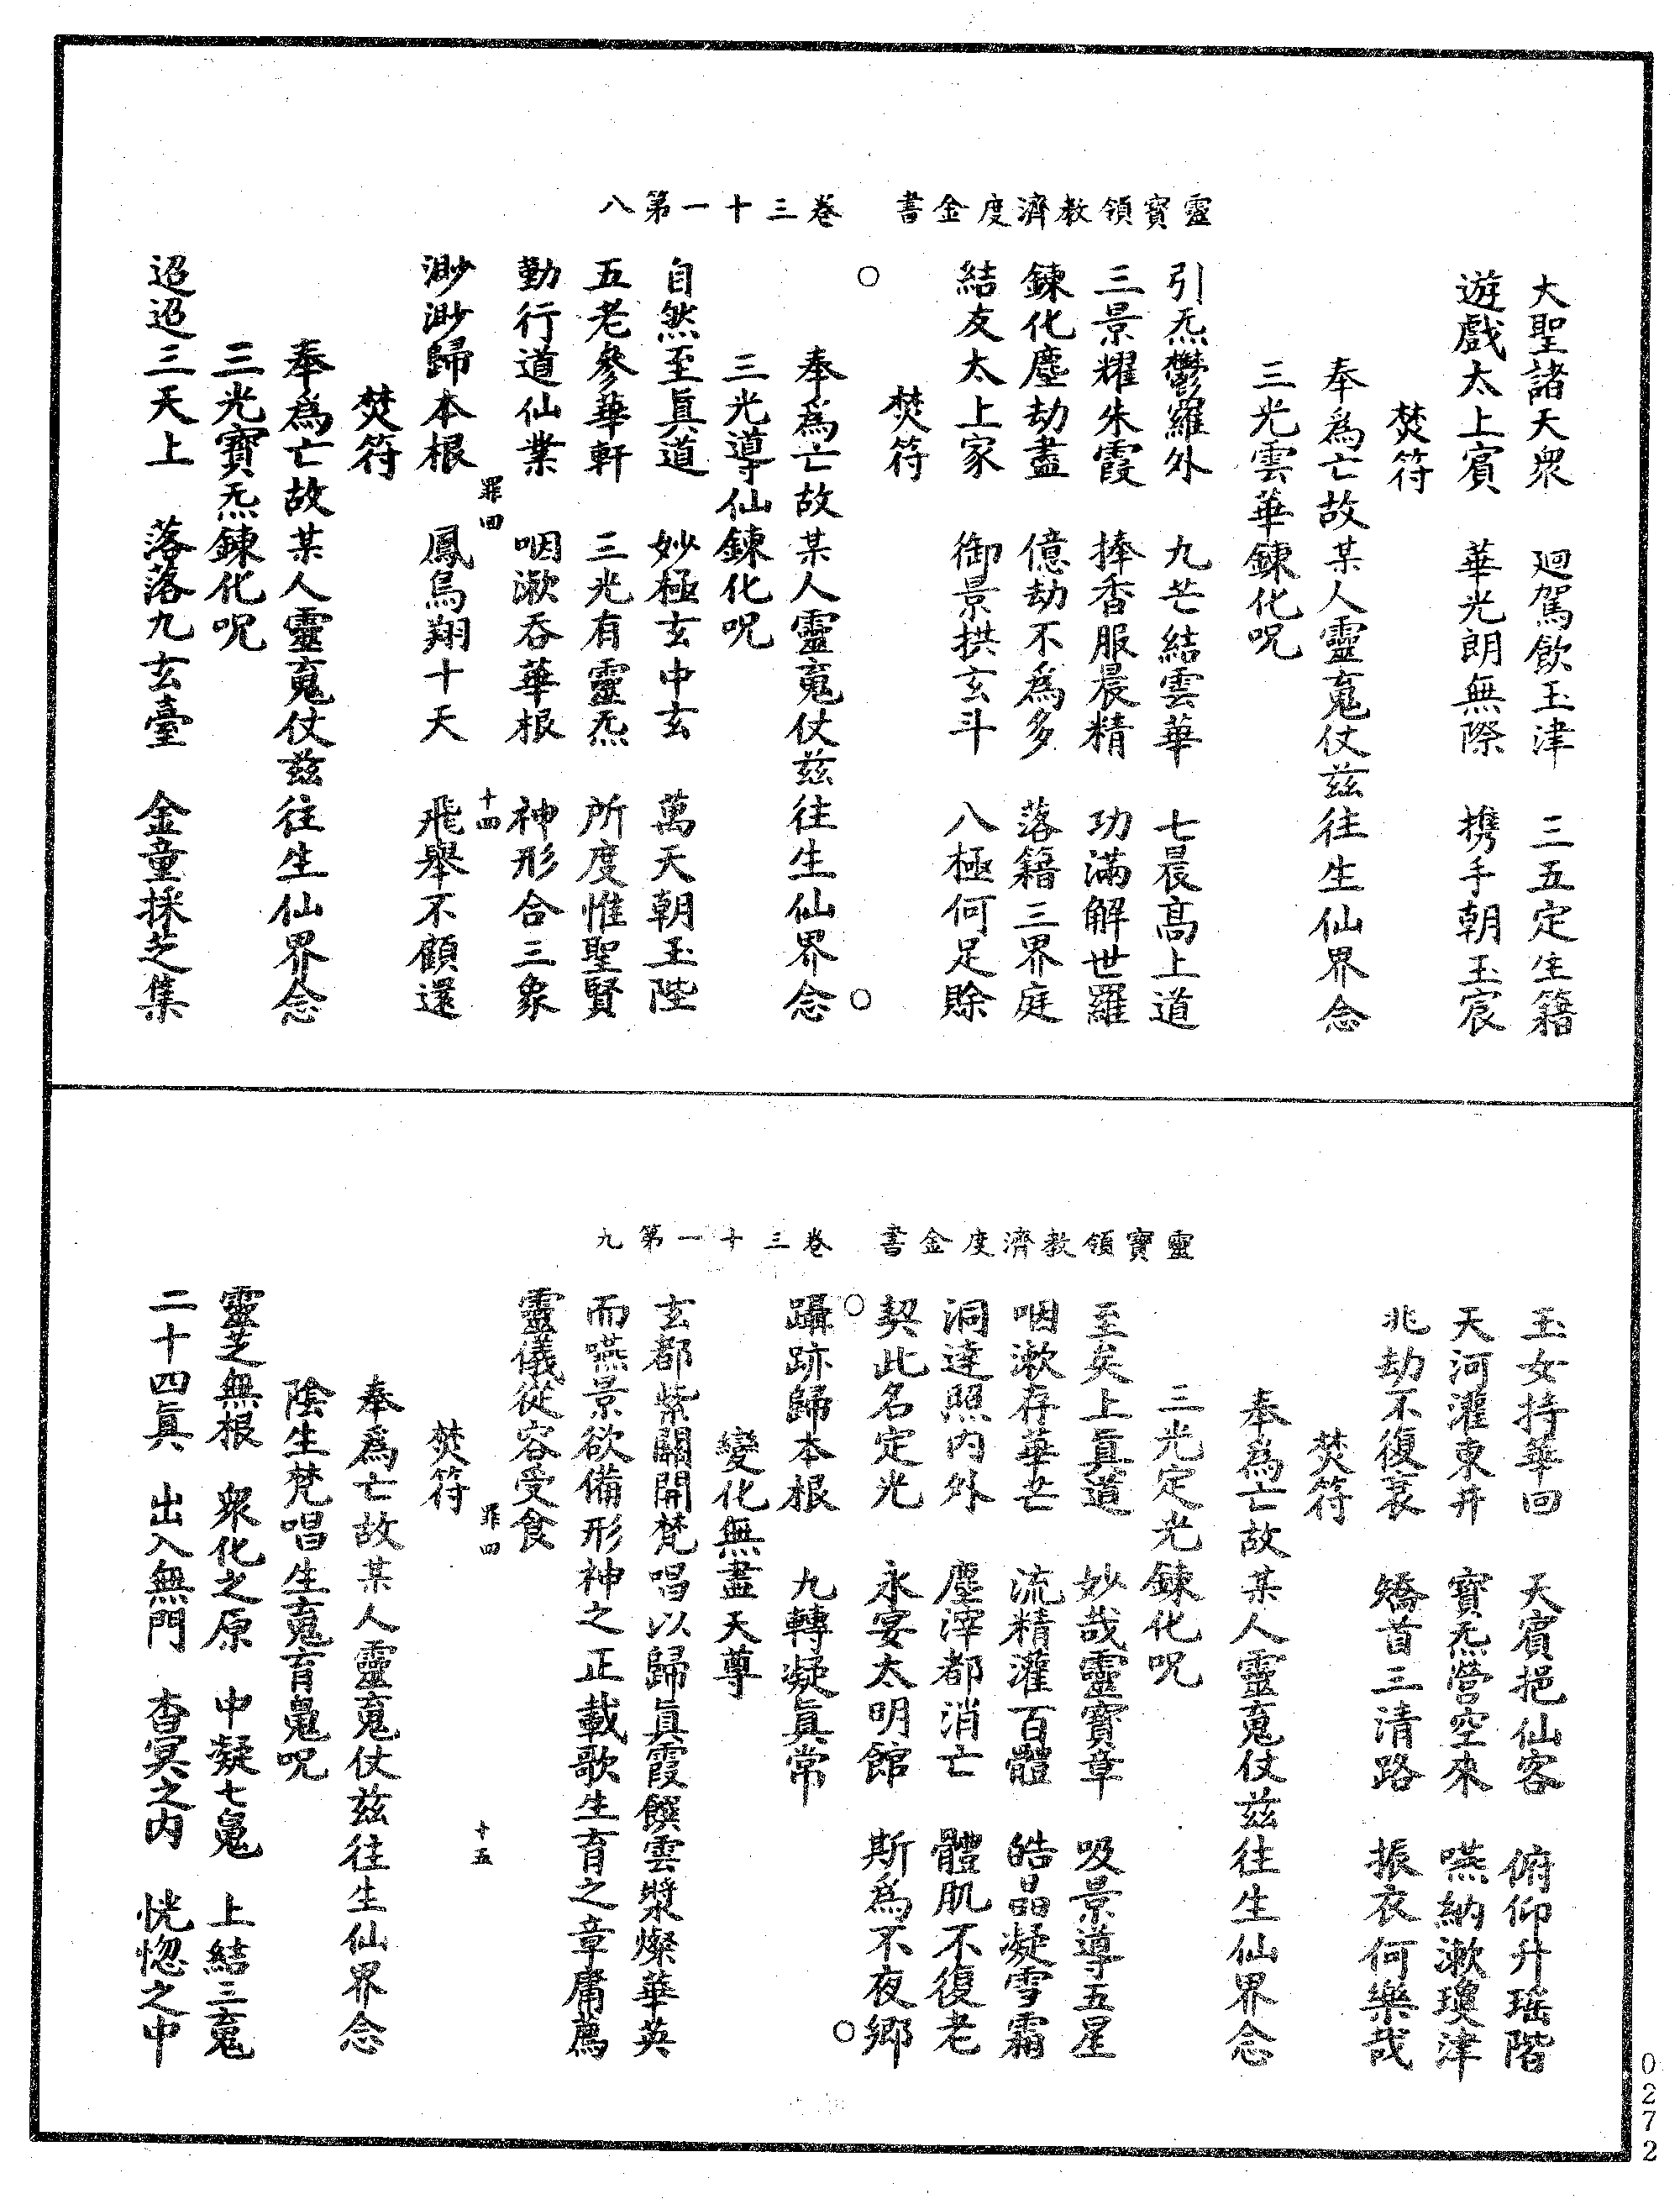 靈寶領教濟度金書　卷三十一第八
大聖諸天衆　廻駕飲玉津　三五定生籍
遊戲太上賓　華光朗無際　携手朝玉宸
焚符
奉爲亡故某人靈䰟仗兹往生仙界念
三光雲華鍊化呪
引炁鬱羅外　九芒結雲華　七晨髙上道
三景耀朱霞　捧香服晨精　功滿解世羅
鍊化塵劫盡　億劫不爲多　落籍三界庭
結友太上家　御景拱玄斗　八極何足賒
焚符
奉爲亡故某人靈䰟仗兹往生仙界念
三光導仙鍊化呪
自然至眞道　妙極玄中玄　萬天朝玉陛
五老參華軒　三光有靈炁　所度惟聖賢
勤行道仙業　咽漱吞華根　神形合三象
罪四　十四
渺渺歸本根　鳳鳥翔十天　飛舉不顧還
焚符
奉爲亡故某人靈䰟仗兹往生仙界念
三光寶炁鍊化呪
迢迢三天上　落落九玄臺　金童採芝集
靈寶領教濟度金書　卷三十一第九
玉女持華回　天賓挹仙客　俯仰升瑶階
天河灌東井　寶炁營空來　嚥納漱瓊津
兆劫不復衰　矯首三清路　振衣何樂哉
焚符
奉爲亡故某人靈䰟仗兹往生仙界念
三光定光鍊化呪
至矣上眞道　妙哉靈寶章　吸景導五星
咽漱存華芒　流精灌百體　皓晶凝雪霜
洞達照内外　塵滓都消亡　體肌不復老
契此名定光　永宴太明館　斯爲不夜鄉
躡跡歸本根　九轉凝眞常
變化無盡天尊
玄都紫闕開梵唱以歸眞霞饌雲漿燦華英
而嚥景欲備形神之正載歌生育之章庸薦
靈儀從容受食
罪四　十五
焚符
奉爲亡故某人靈䰟仗兹往生仙界念
陰生梵唱生䰟育魄呪
靈芝無根　衆化之原　中凝七魄　上結三䰟
二十四眞　出入無門　杳冥之内　恍惚之中
0272